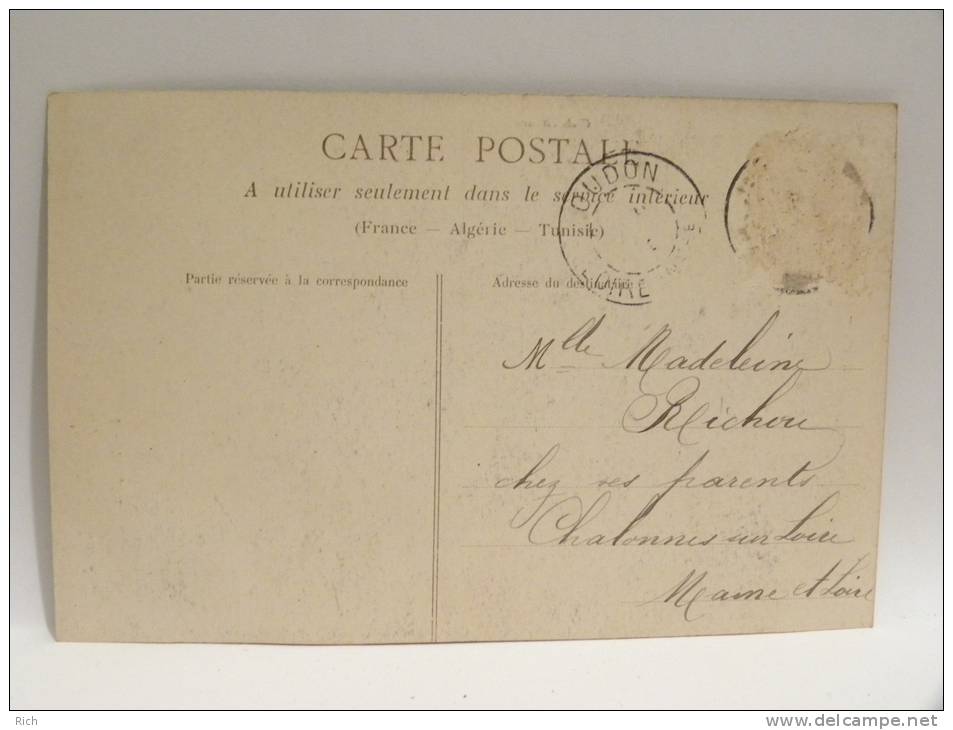 CARTE POSTALE
A utiliser seulement dans le service intérieur
(France — Algérie — Tunisie)
OUDON
LOIRE
Partie réservée à la correspondance
Adresse du destinataire
Mlle Madeleine
Richou
chez ses parents
Chalonnes sur Loire
Maine et Loire
Rich
www.delcampe.net